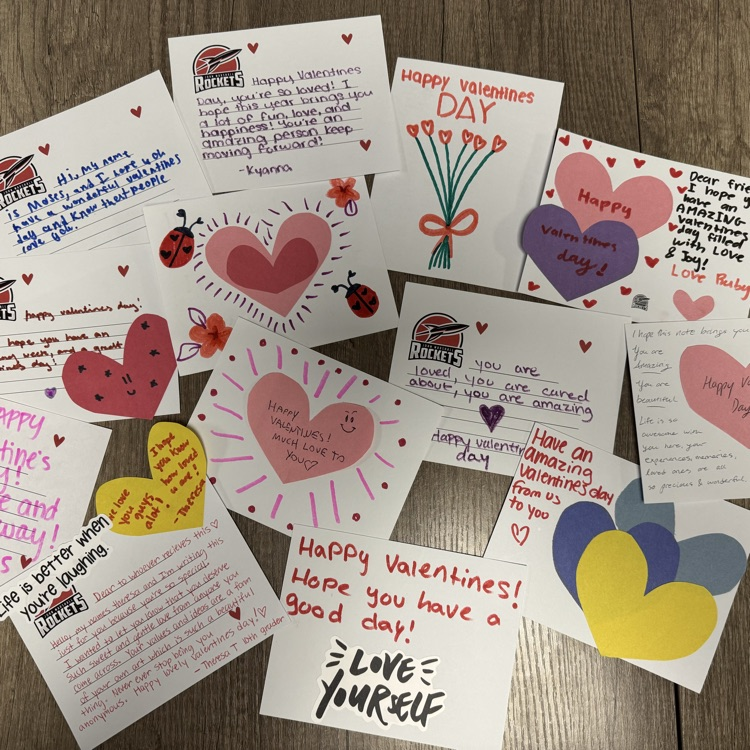 ROCKETS
Happy Valentines
Day, you're so loved! I
hope this year brings you
a lot of fun, love, and
happiness! You're an
amazing person keep
moving forward!
-Kyanna
Happy valentines
DAY
Hi, my name
is Moses, and I hope u oh
have a wonderful valentines
day and know that people
love you.
Happy
Valentines
day!
Dear frie
I hope y
have an
AMAZING
valentines
day filled
with Love
& Joy!
Love Ruby
happy valentines day!
hope you have an
ROCKETS
you are
loved, you are cared
about, you are amazing
Happy valentin
day
I hope this note brings you
You are
amazing
You are
beautiful
Life is so
awesome with
you here, your
experiences, memories,
loved ones are all
so precious & wonderful
Happy V
Day
HAPPY
VALENTINES!
MUCH LOVE TO
YOU
APPY
ntine's
y!
e and
way!
I hope
you know
how loved
u are!
-Theresa
we love
you
guys
alot!
Have an
amazing
valentines day
from us
to you
Life is better when
you're laughing.
ROCKETS
Dear to whoever recieves this
Hello, my names theresa and I'm writing this
just for you because you're so special.
I wanted to let you know that you deserve
such sweet and gentle love from anyone you
come across. Your values and ideas are a form
of your own art which is such a beautiful
thing. Never ever stop bring you
anonymous. Happy lovely valentines day!
- Theresa T 10th grader
Happy Valentines!
Hope you have a
good day!
LOVE
YOURSELF